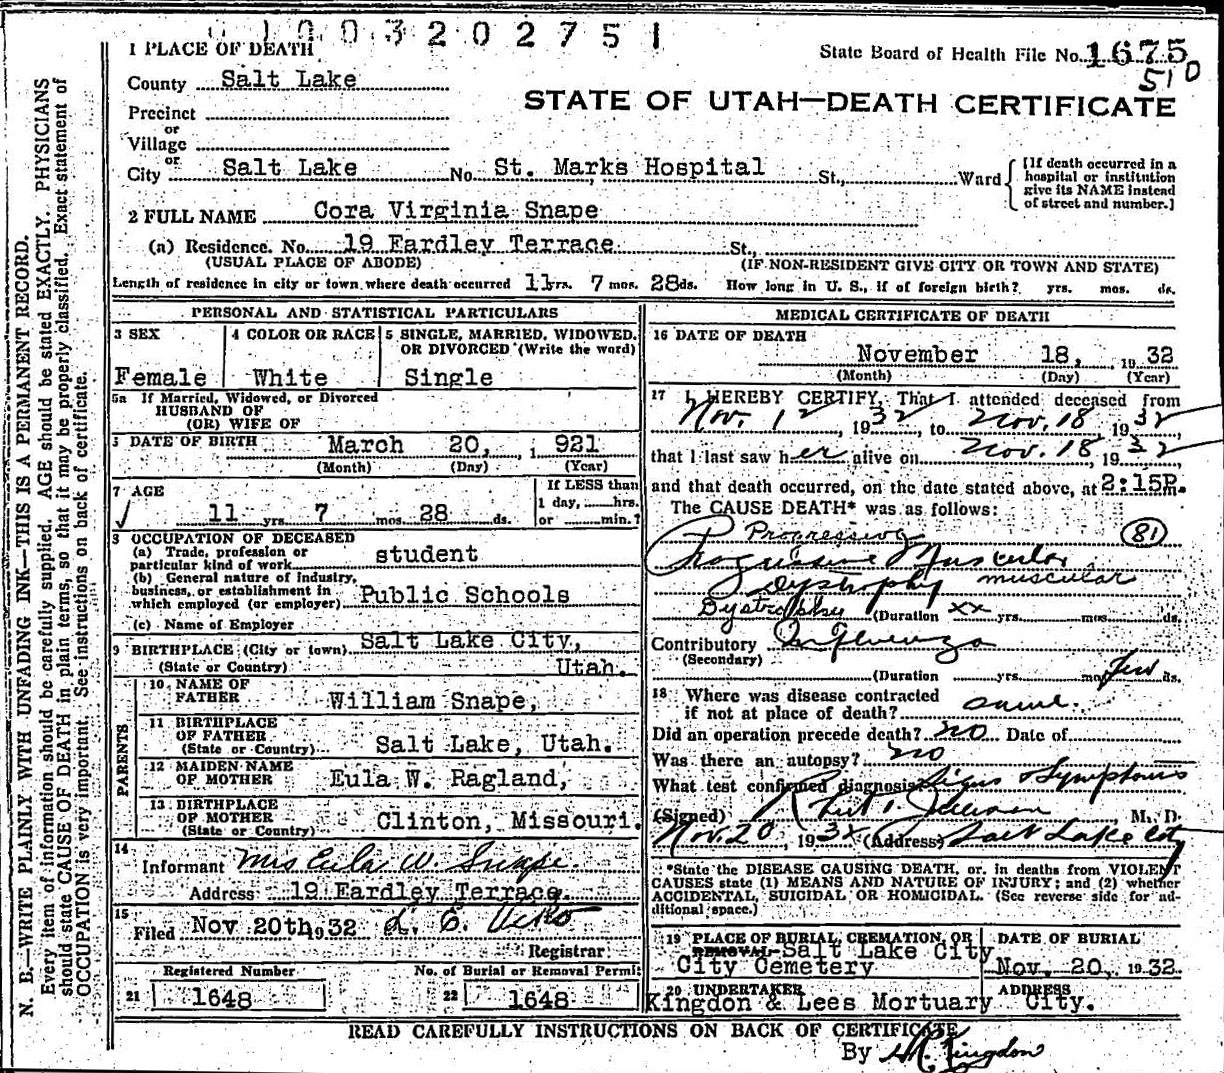 1003202751
1 PLACE OF DEATH
State Board of Health File No. 1675
510
County Salt Lake
STATE OF UTAH—DEATH CERTIFICATE
Precinct
or
Village
or
City Salt Lake No. St. Marks Hospital St., Ward
[If death occurred in a hospital or institution give its NAME instead of street and number.]
2 FULL NAME Cora Virginia Snape
(a) Residence. No. 19 Eardley Terrace St.,
(USUAL PLACE OF ABODE) (IF NON-RESIDENT GIVE CITY OR TOWN AND STATE)
Length of residence in city or town where death occurred 11 yrs. 7 mos. 28 ds. How long in U. S., if of foreign birth? yrs. mos. ds.
PERSONAL AND STATISTICAL PARTICULARS
3 SEX
Female
4 COLOR OR RACE
White
5 SINGLE, MARRIED, WIDOWED, OR DIVORCED (Write the word)
Single
5a If Married, Widowed, or Divorced
HUSBAND OF
(OR) WIFE OF
DATE OF BIRTH March 20, 1921
(Month) (Day) (Year)
7 AGE
11 yrs. 7 mos. 28 ds.
If LESS than
1 day, hrs.
or min.?
8 OCCUPATION OF DECEASED
(a) Trade, profession or
particular kind of work student
(b) General nature of Industry,
business, or establishment in
which employed (or employer) Public Schools
(c) Name of Employer
9 BIRTHPLACE (City or town) Salt Lake City,
(State or Country) Utah.
PARENTS
10 NAME OF
FATHER William Snape,
11 BIRTHPLACE
OF FATHER
(State or Country) Salt Lake, Utah.
12 MAIDEN NAME
OF MOTHER Eula W. Ragland,
13 BIRTHPLACE
OF MOTHER
(State or Country) Clinton, Missouri.
14
Informant Mrs Eula W. Snape.
Address 19 Eardley Terrace.
15
Filed Nov 20th, 1932
Registrar
Registered Number
21 1648
No. of Burial or Removal Permit
22 1648
MEDICAL CERTIFICATE OF DEATH
16 DATE OF DEATH
November 18, 1932
(Month) (Day) (Year)
17 I HEREBY CERTIFY, That I attended deceased from
Nov. 1, 1932, to Nov. 18, 1932,
that I last saw her alive on Nov. 18, 1932
and that death occurred, on the date stated above, at 2:15P.m.
The CAUSE DEATH* was as follows:
Progressive 81
Progressive Muscular
Dystrophy muscular
Dystrophy (Duration xx yrs. mos. ds.
Contributory Influenza
(Secondary)
(Duration yrs. mos. few ds.
18 Where was disease contracted
if not at place of death? same.
Did an operation precede death? no Date of
Was there an autopsy? no
What test confirmed diagnosis Signs & Symptoms
(Signed) M. D.
Nov. 20, 1932 (Address) Salt Lake City
*State the DISEASE CAUSING DEATH, or, in deaths from VIOLENT
CAUSES state (1) MEANS AND NATURE OF INJURY; and (2) whether
ACCIDENTAL, SUICIDAL OR HOMICIDAL. (See reverse side for ad-
ditional space.)
19 PLACE OF BURIAL, CREMATION, OR
REMOVAL Salt Lake City
City Cemetery
DATE OF BURIAL
Nov. 20, 1932.
20 UNDERTAKER
Kingdon & Lees Mortuary
ADDRESS
City.
READ CAREFULLY INSTRUCTIONS ON BACK OF CERTIFICATE
By Kingdon
N. B.—WRITE PLAINLY WITH UNFADING INK—THIS IS A PERMANENT RECORD.
Every item of information should be carefully supplied. AGE should be stated EXACTLY. PHYSICIANS
should state CAUSE OF DEATH in plain terms, so that it may be properly classified. Exact statement of
OCCUPATION is very important. See instructions on back of certificate.